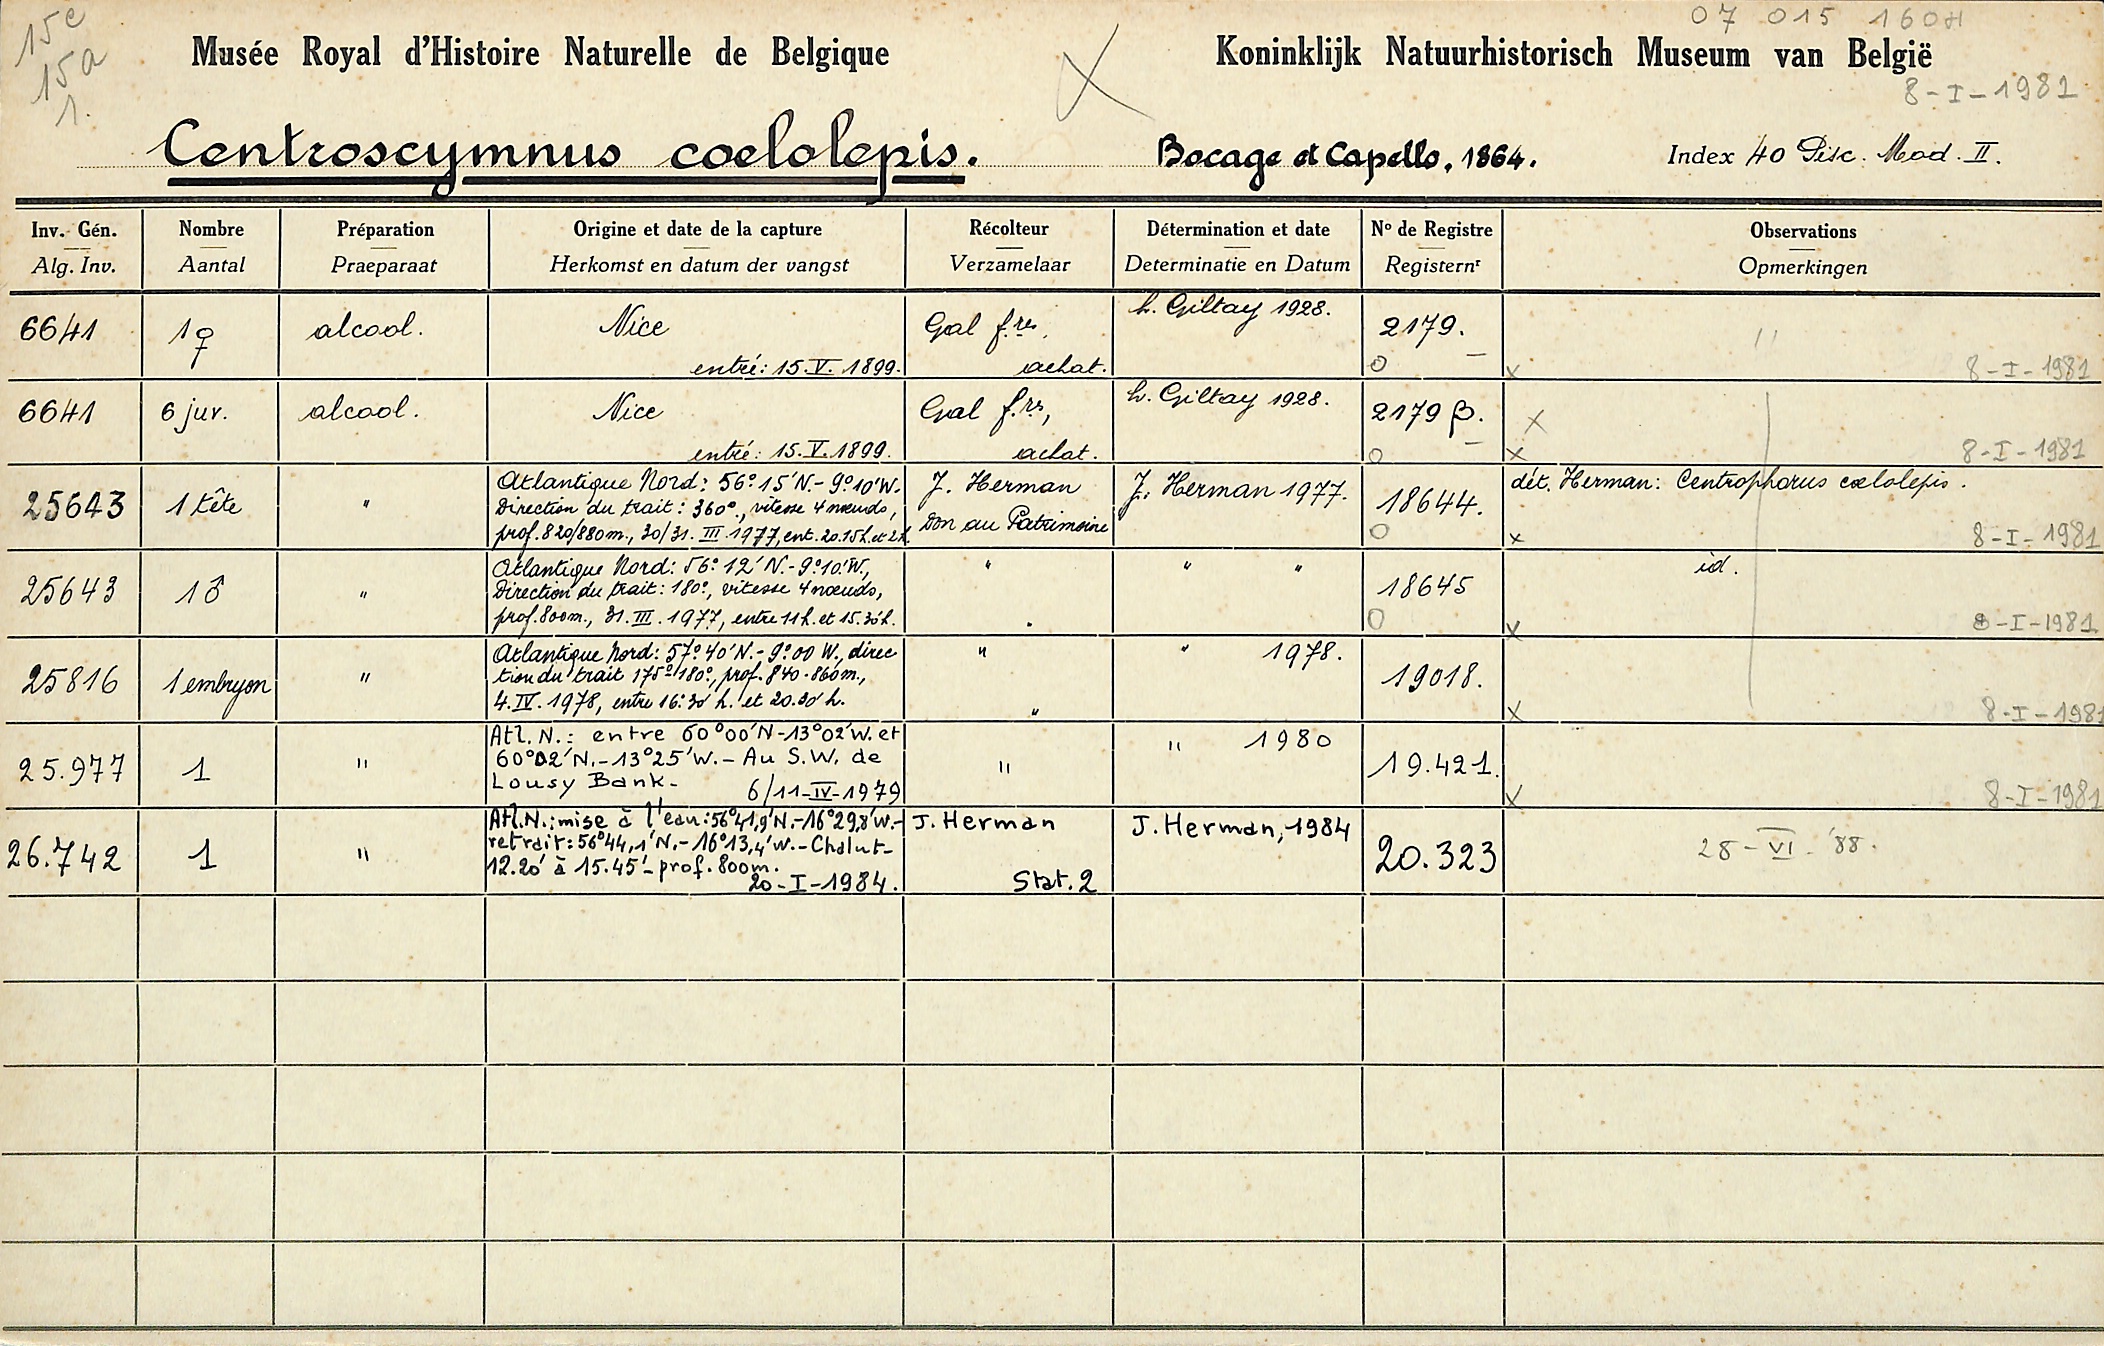 15c
15a
1.
07 015 1604
Musée Royal d'Histoire Naturelle de Belgique
Koninklijk Natuurhistorisch Museum van België
8-I-1981
Centroscymnus coelolepis.
Bocage et Capello, 1864.
Index 40 Pisc. Mod. II.
Inv. Gén. Nombre Préparation Origine et date de la capture Récolteur Détermination et date N° de Registre Observations
Alg. Inv. Aantal Praeparaat Herkomst en datum der vangst Verzamelaar Determinatie en Datum Registernr Opmerkingen
6641 1 ♀ alcool. Nice Gal f.res, L. Giltay 1928. 2179. "
entré: 15.V.1899. achat. O x 8-I-1981
6641 6 juv. alcool. Nice Gal f.res, L. Giltay 1928. 2179 β. x
entré: 15.V.1899. achat. O x 8-I-1981
25643 1 tête " Atlantique Nord: 56° 15' N. - 9° 10' W. J. Herman J. Herman 1977. 18644. dét. Herman: Centrophorus cœlolepis.
Direction du trait: 360°, vitesse 4 nœuds, Don au Patrimoine
prof. 820/880m., 30/31. III. 1977, ent. 20.15h. et 2h. O x 8-I-1981
25643 1 ♂ " Atlantique Nord: 56° 12' N. - 9° 10' W., " " " 18645 id.
Direction du trait: 180°, vitesse 4 nœuds,
prof. 800m., 31. III. 1977, entre 11h. et 15.30h. O x 8-I-1981
25816 1 embryon " Atlantique Nord: 57° 40' N. - 9° 00 W., direc " " 1978. 19018.
tion du trait 175°-180°, prof. 840-860m.,
4. IV. 1978, entre 16:30 h. et 20.30 h. " x 8-I-1981
25.977 1 " Atl. N.: entre 60°00'N-13°02'W. et " " 1980 19.421.
60°02'N.-13°25'W.- Au S.W. de
Lousy Bank- 6/11-IV-1979 x 8-I-1981
26.742 1 " Atl. N.: mise à l'eau: 56°41,9'N.-16°29,8'W.- J. Herman J. Herman, 1984 20.323 28-VI-'88.
retrait: 56°44,1'N.-16°13,4'W.- Chalut-
12.20' à 15.45'- prof. 800m.
20-I-1984. Stat. 2